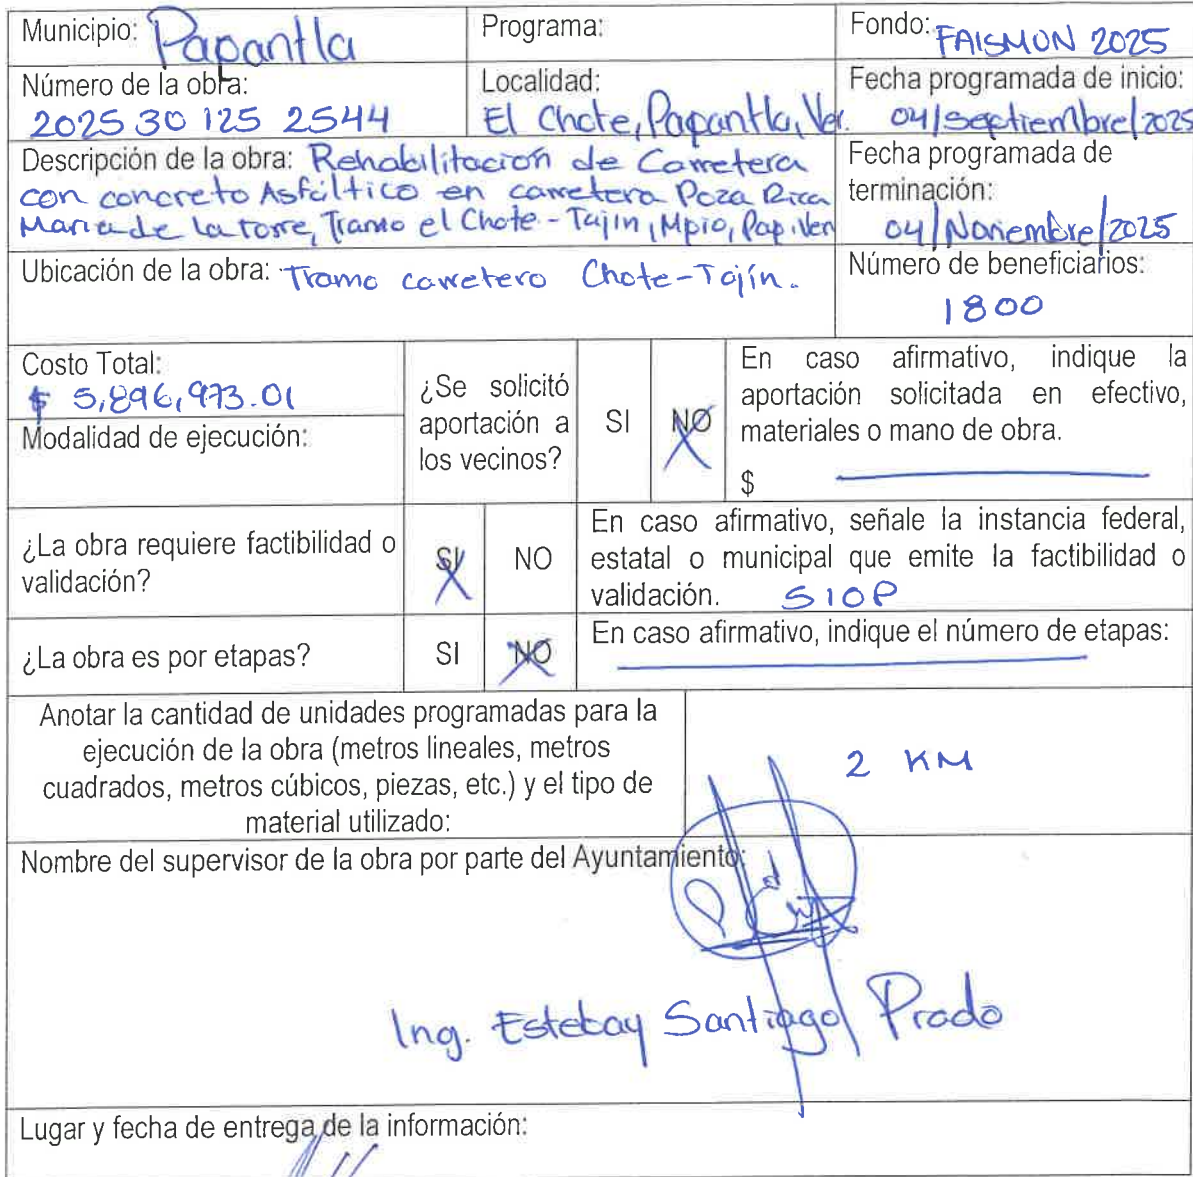 Municipio: Papantla
Programa:
Fondo: FAISMUN 2025
Número de la obra:
2025 30 125 2544
Localidad:
El Chote, Papantla, Ver.
Fecha programada de inicio:
04/septiembre/2025
Descripción de la obra: Rehabilitación de Carretera
con concreto Asfáltico en carretera Poza Rica
Maria de la torre, Tramo el Chote - Tajin, Mpio, Pap, Ver
Fecha programada de
terminación:
04/Noviembre/2025
Ubicación de la obra: Tramo carretero Chote-Tajín.
Número de beneficiarios:
1800
Costo Total:
$ 5,896,973.01
Modalidad de ejecución:
¿Se solicitó
aportación a
los vecinos?
SI
NO
En caso afirmativo, indique la
aportación solicitada en efectivo,
materiales o mano de obra.
$
¿La obra requiere factibilidad o
validación?
SI
NO
En caso afirmativo, señale la instancia federal,
estatal o municipal que emite la factibilidad o
validación. SIOP
¿La obra es por etapas?
SI
NO
En caso afirmativo, indique el número de etapas:
Anotar la cantidad de unidades programadas para la
ejecución de la obra (metros lineales, metros
cuadrados, metros cúbicos, piezas, etc.) y el tipo de
material utilizado:
2 KM
Nombre del supervisor de la obra por parte del Ayuntamiento:
Ing. Esteban Santiago Prado
Lugar y fecha de entrega de la información: